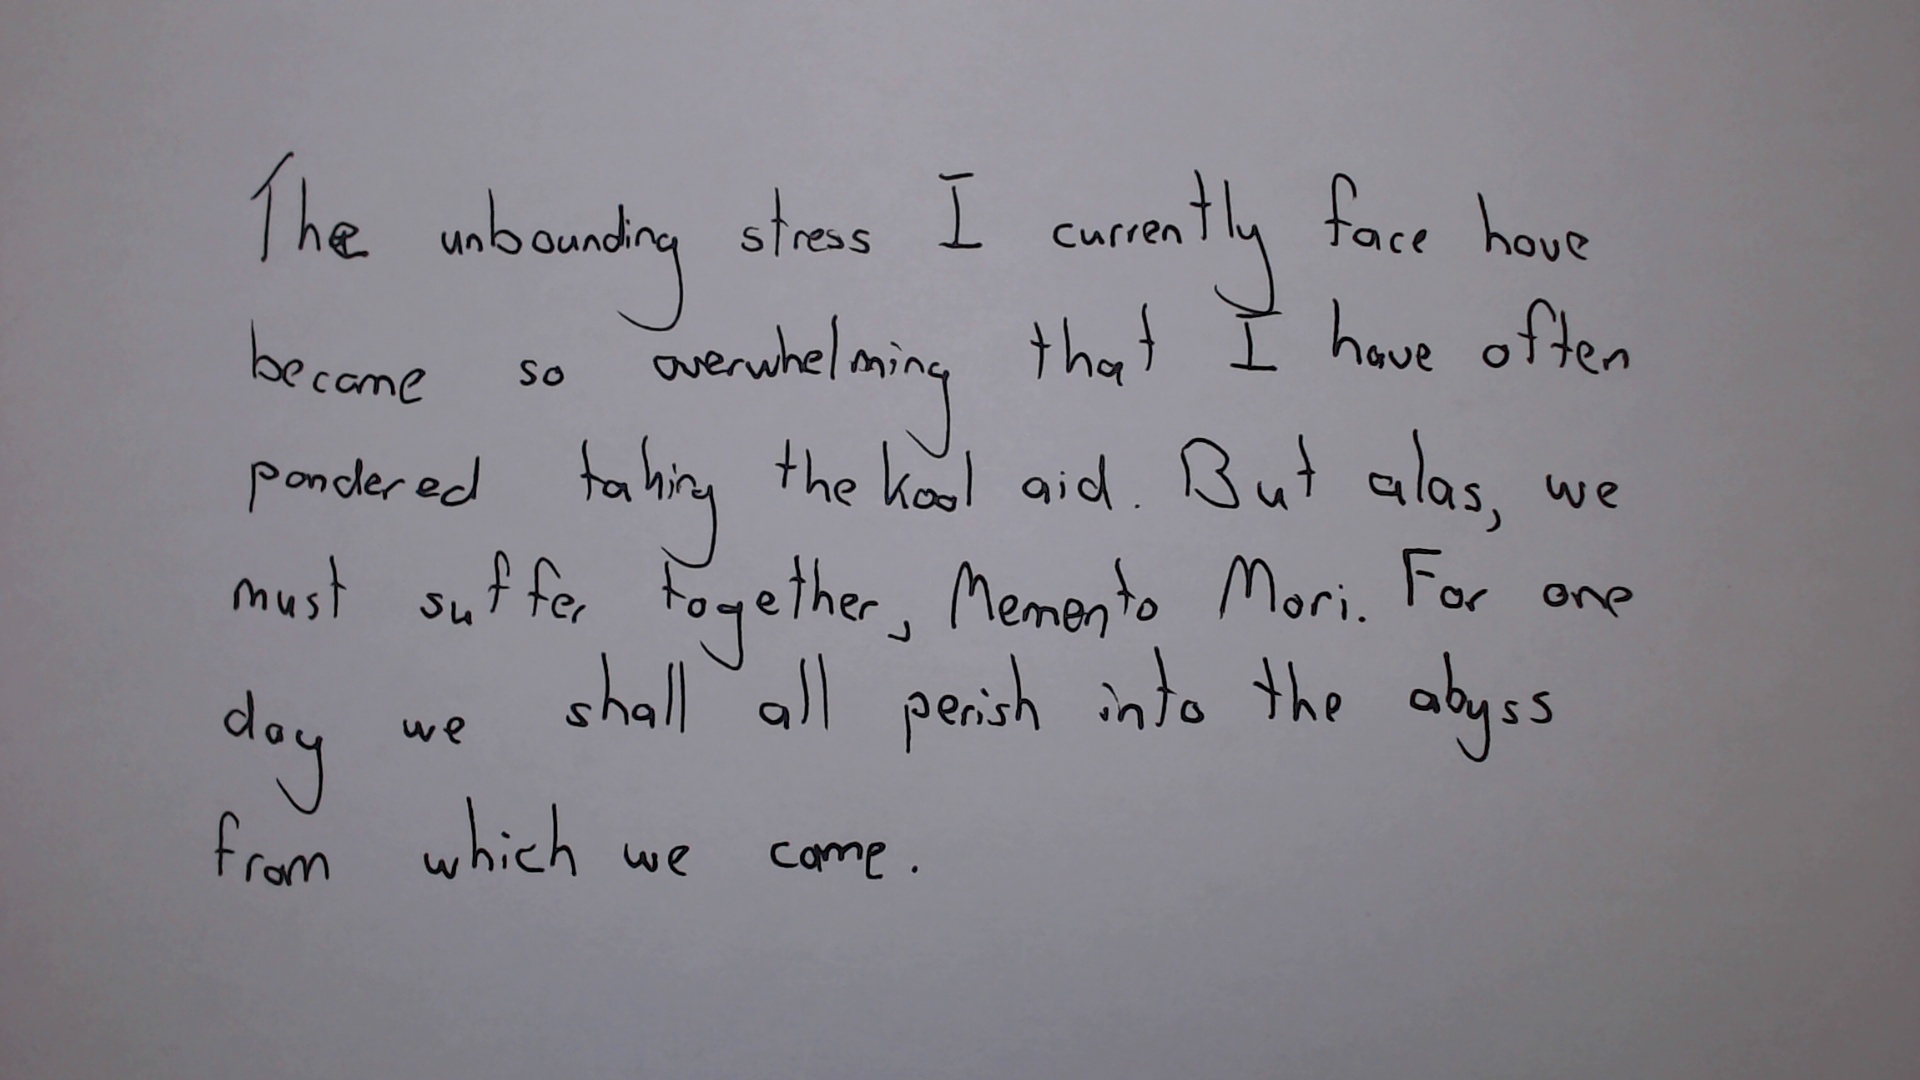 The unbounding stress I currently face have
become so overwhelming that I have often
pondered taking the kool aid. But alas, we
must suffer together, Memento Mori. For one
day we shall all perish into the abyss
from which we came.